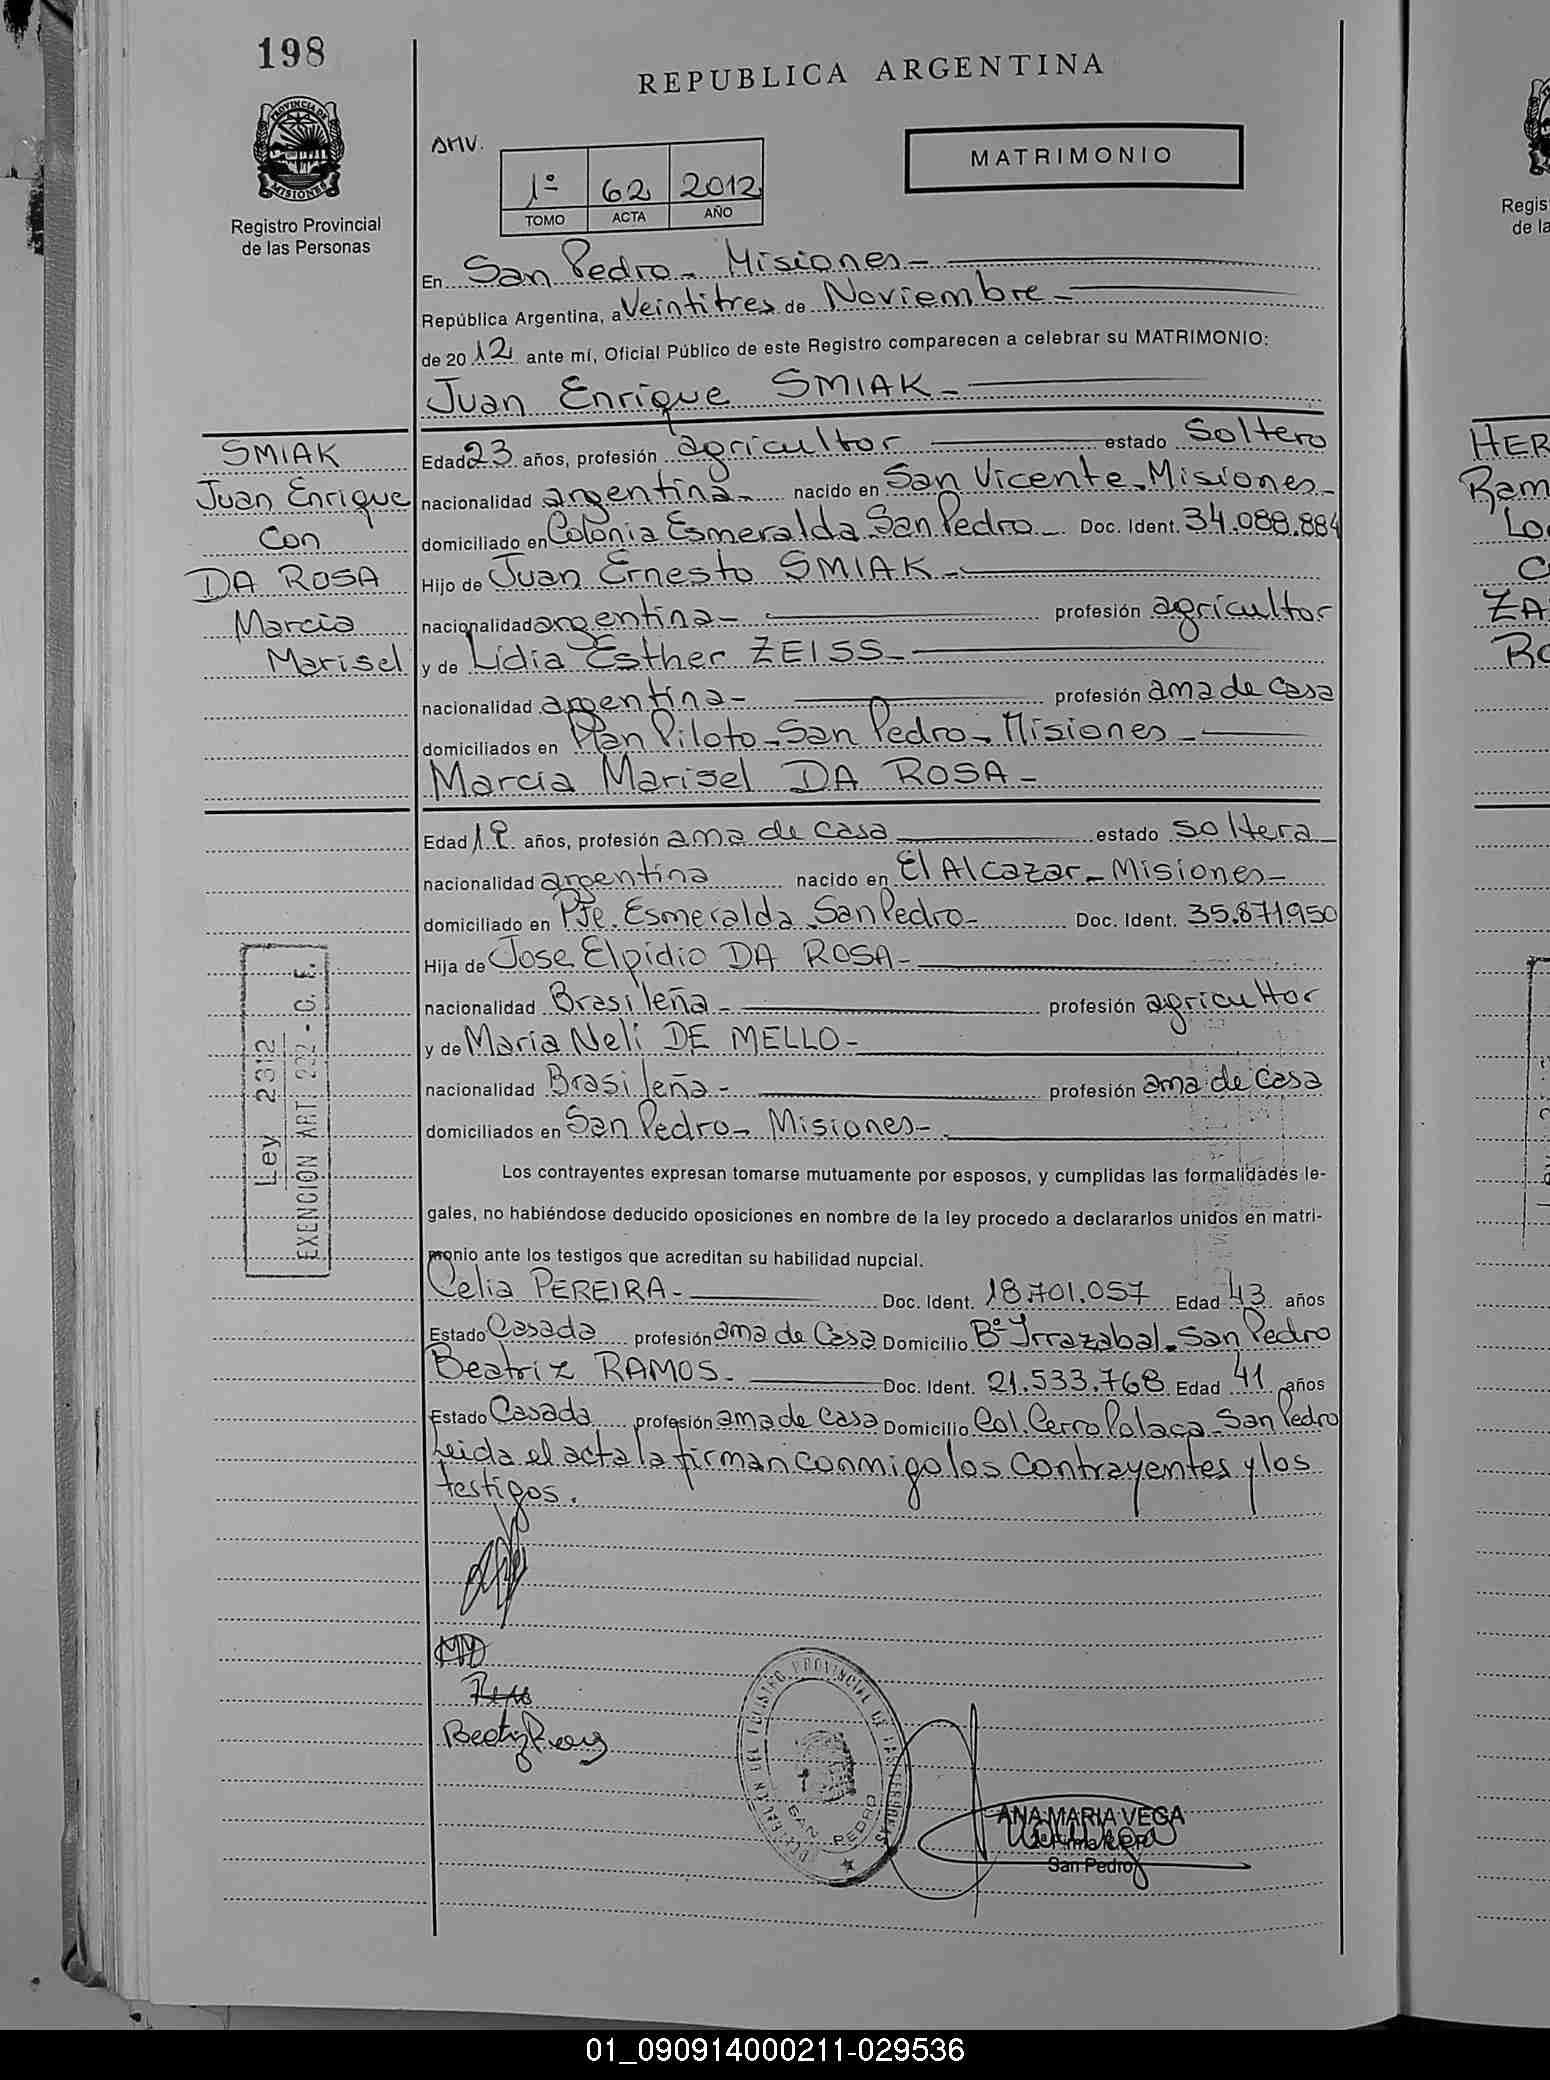 198
REPUBLICA ARGENTINA
PROVINCIA DE
MISIONES
Registro Provincial
de las Personas
AMV.
1º 62 2012
TOMO ACTA AÑO
MATRIMONIO
En San Pedro - Misiones -
República Argentina, a Veintitres de Noviembre -
de 2012 ante mí, Oficial Público de este Registro comparecen a celebrar su MATRIMONIO:
Juan Enrique SMIAK -
SMIAK
Juan Enrique
con
DA ROSA
Marcia
Marisel
Edad 23 años, profesión agricultor estado Soltero
nacionalidad argentina - nacido en San Vicente - Misiones -
domiciliado en Colonia Esmeralda - San Pedro - Doc. Ident. 34.088.884
Hijo de Juan Ernesto SMIAK -
nacionalidad argentina - profesión agricultor
y de Lidia Esther ZEISS -
nacionalidad argentina - profesión ama de casa
domiciliados en Plan Piloto - San Pedro - Misiones -
Marcia Marisel DA ROSA -
Edad años, profesión ama de casa estado soltera
nacionalidad argentina nacido en El Alcazar - Misiones -
domiciliado en Pje. Esmeralda San Pedro - Doc. Ident. 35.871.950
Hija de Jose Elpidio DA ROSA -
nacionalidad Brasileña - profesión agricultor
y de Maria Neli DE MELLO -
nacionalidad Brasileña - profesión ama de casa
domiciliados en San Pedro - Misiones -
Ley 2312
EXENCION ART. 222 - C. F.
Los contrayentes expresan tomarse mutuamente por esposos, y cumplidas las formalidades le-
gales, no habiéndose deducido oposiciones en nombre de la ley procedo a declararlos unidos en matri-
monio ante los testigos que acreditan su habilidad nupcial.
Celia PEREIRA - Doc. Ident. 18.701.057 Edad 43 años
Estado Casada profesión ama de Casa Domicilio Bº Irrazabal - San Pedro
Beatriz RAMOS - Doc. Ident. 21.533.768 Edad 41 años
Estado Casada profesión ama de casa Domicilio Col. Cerro Polaca - San Pedro
Leida el acta la firman conmigo los contrayentes y los
testigos.
SAN PEDRO
ANA MARIA VEGA
San Pedro
HER
Ram
Lo
C
ZA
Ro
Regis
de la
01_090914000211-029536